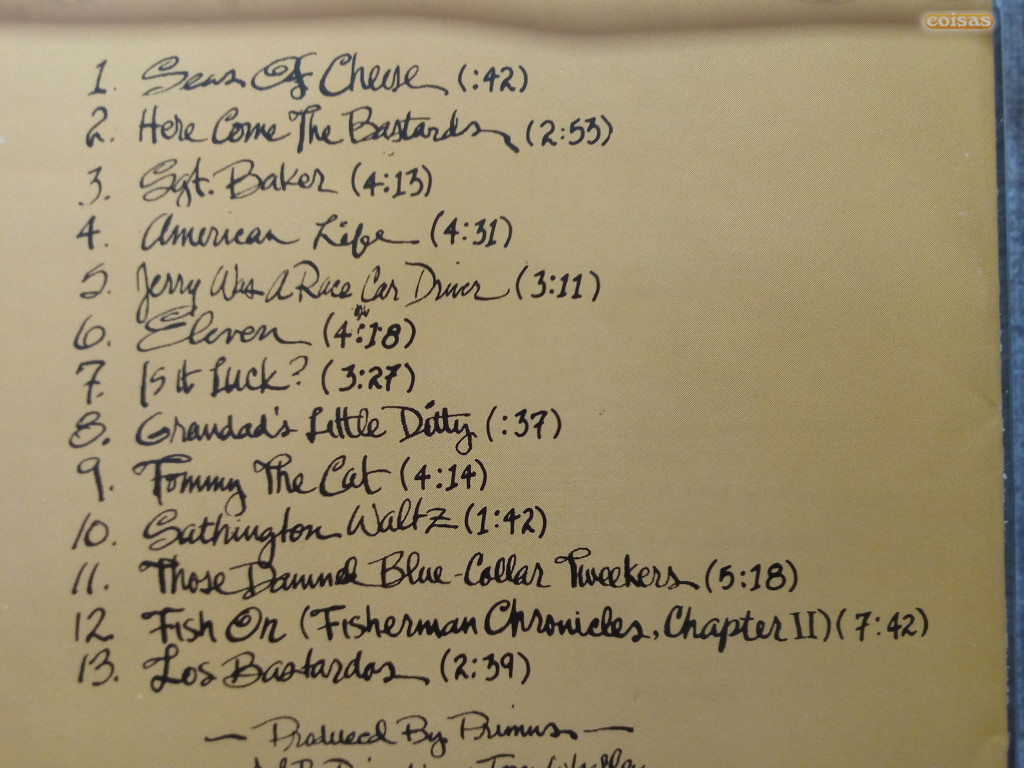 coisas
1. Seas Of Cheese (:42)
2. Here Come The Bastards (2:53)
3. Sgt. Baker (4:13)
4. American Life (4:31)
5. Jerry Was A Race Car Driver (3:11)
6. Eleven (4:18)
7. Is It Luck? (3:27)
8. Grandad's Little Ditty (:37)
9. Tommy The Cat (4:14)
10. Sathington Waltz (1:42)
11. Those Damned Blue-Collar Tweekers (5:18)
12 Fish On (Fisherman Chronicles, Chapter II) (7:42)
13. Los Bastardos (2:39)
— Produced By Primus —